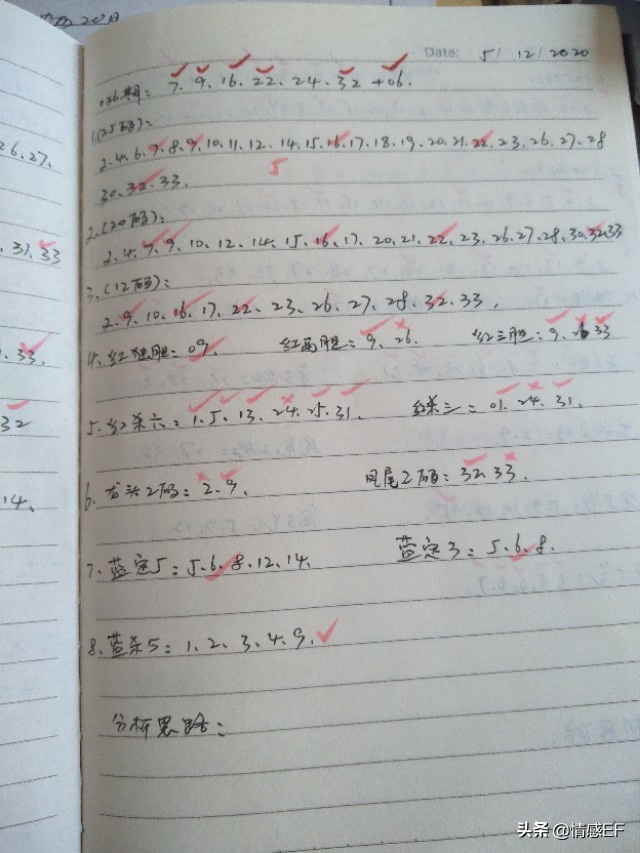 Date: 5/12/2020
036期: 7、9、16、22、24、32+06.
1.(25码):
2.4.6.7.8.9.10.11.12.14.15.16.17.18.19.20.21.22.23.26.27.28
30.32.33.
5
2.(20码):
2.4.7.9.10.12.14.15.16.17.20.21.22.23.26.27.28.30.32.33
3.(12码):
2.9.10.16.17.22.23.26.27.28.32.33.
4.红独胆: 09. 红两胆: 9、26. 红三胆: 9、26、33
5.红杀六: 1.5.13.24.25.31. 红杀三: 01.24.31.
6.龙头2码: 2、9. 凤尾2码: 32.33.
7.蓝定5: 5.6.8.12.14. 蓝定3: 5.6.8.
8.蓝杀5: 1、2、3、4、9.
分析思路:
26.27.
31.33
33.
32
14、
头条 @情感EF